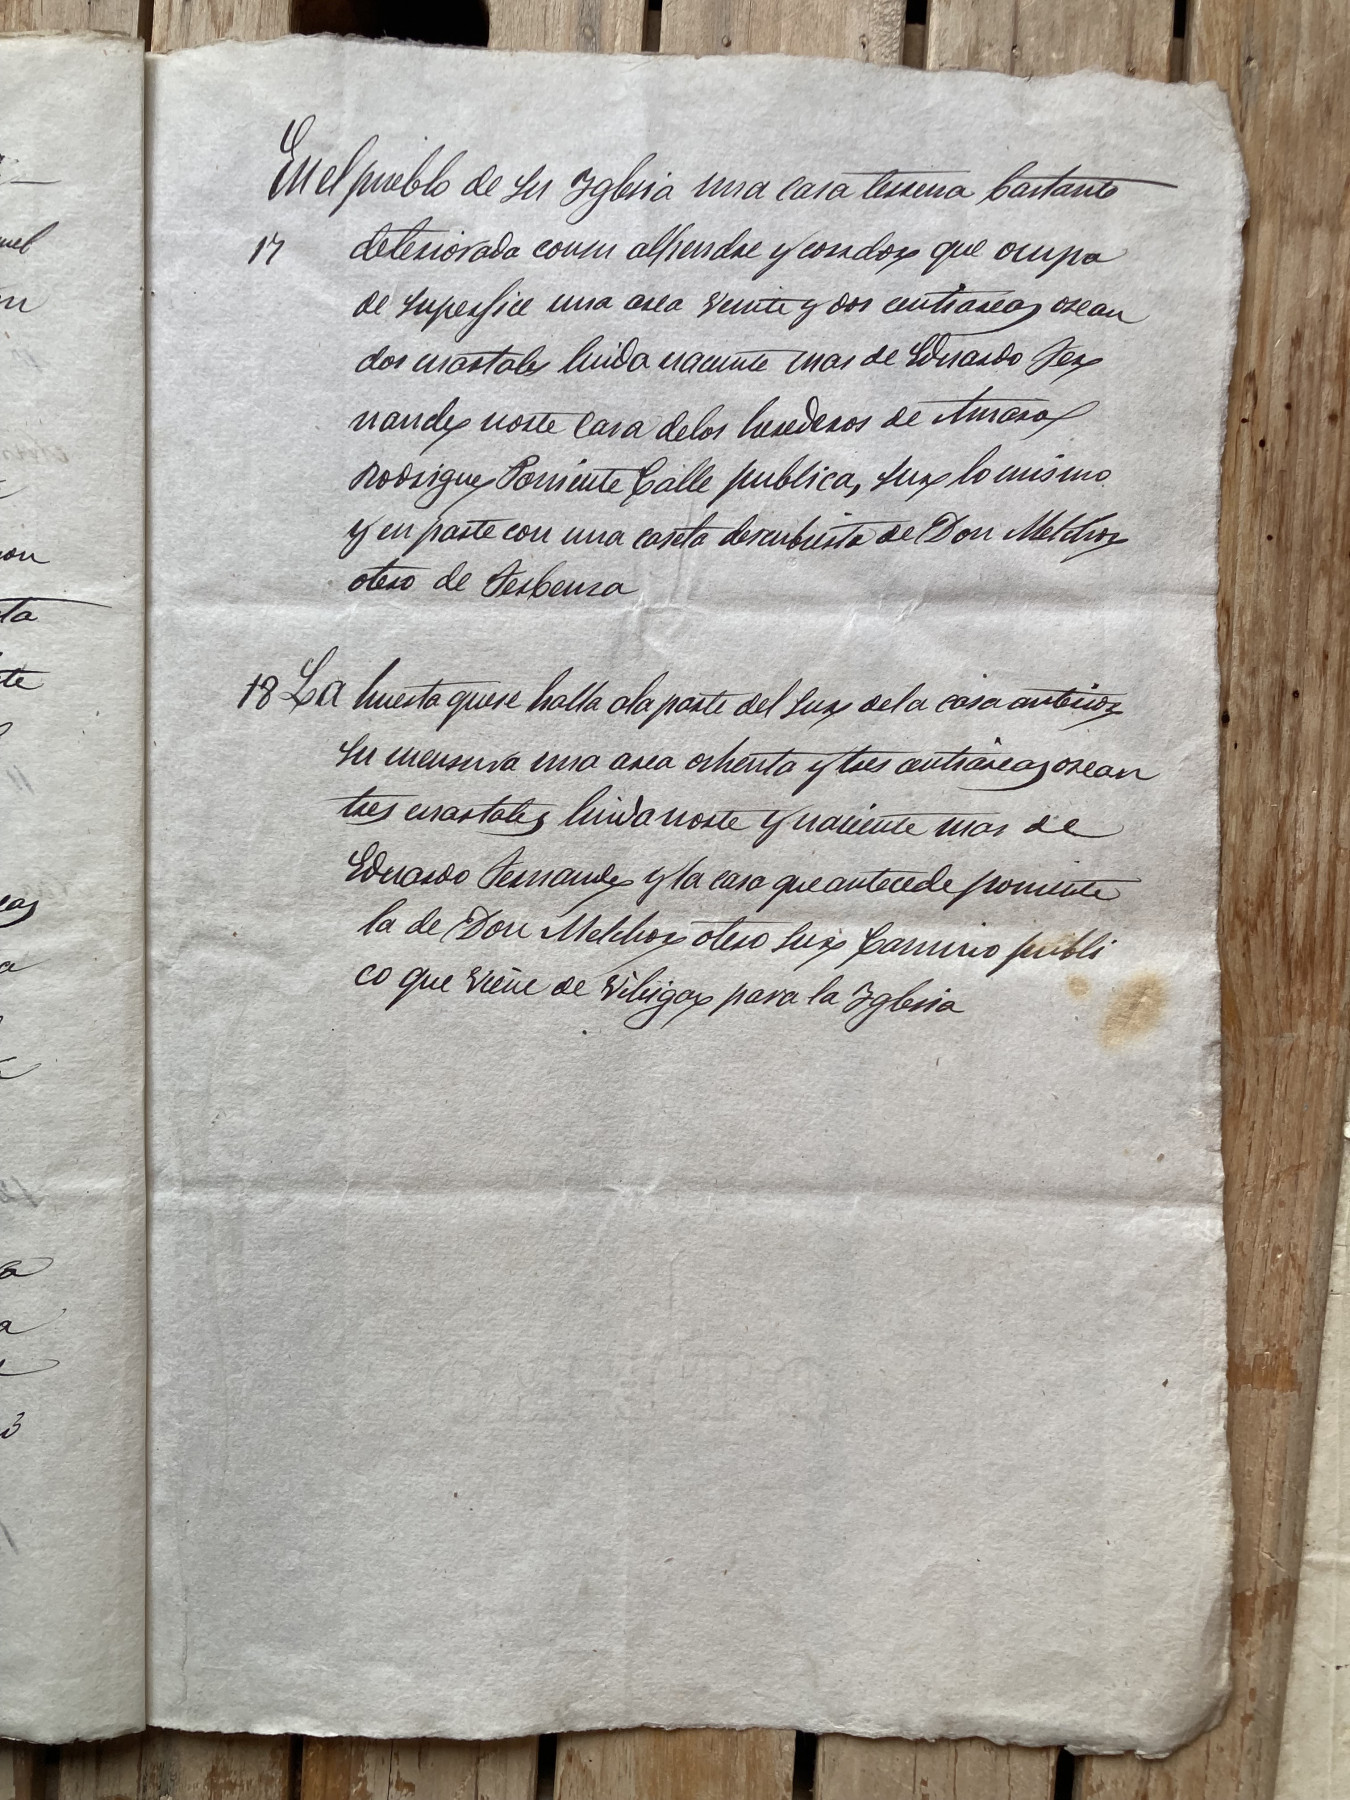 En el pueblo de su Yglesia una casa terrena bastante
17 deteriorada con su alpendre y corrdor que ocupa
de superficie una area veinte y dos centiareas osean
dos cuartales linda naciente mas de Eduardo Fer
nandez norte casa delos herederos de Amaro
Rodriguez Poniente Calle publica, sur lo mismo
y en parte con una caseta descubierta de Don Melchor
otero de Ferbenza
18 La huerta quese halla ala parte del sur dela casa anterior
su mensura una area ochenta y tres centiareas osean
tres cuartales linda norte y naciente mas de
Eduardo Fernandez y la casa que antecede poniente
la de Don Melchor otero sur Camino publi
co que viene de Viligar para la Yglesia